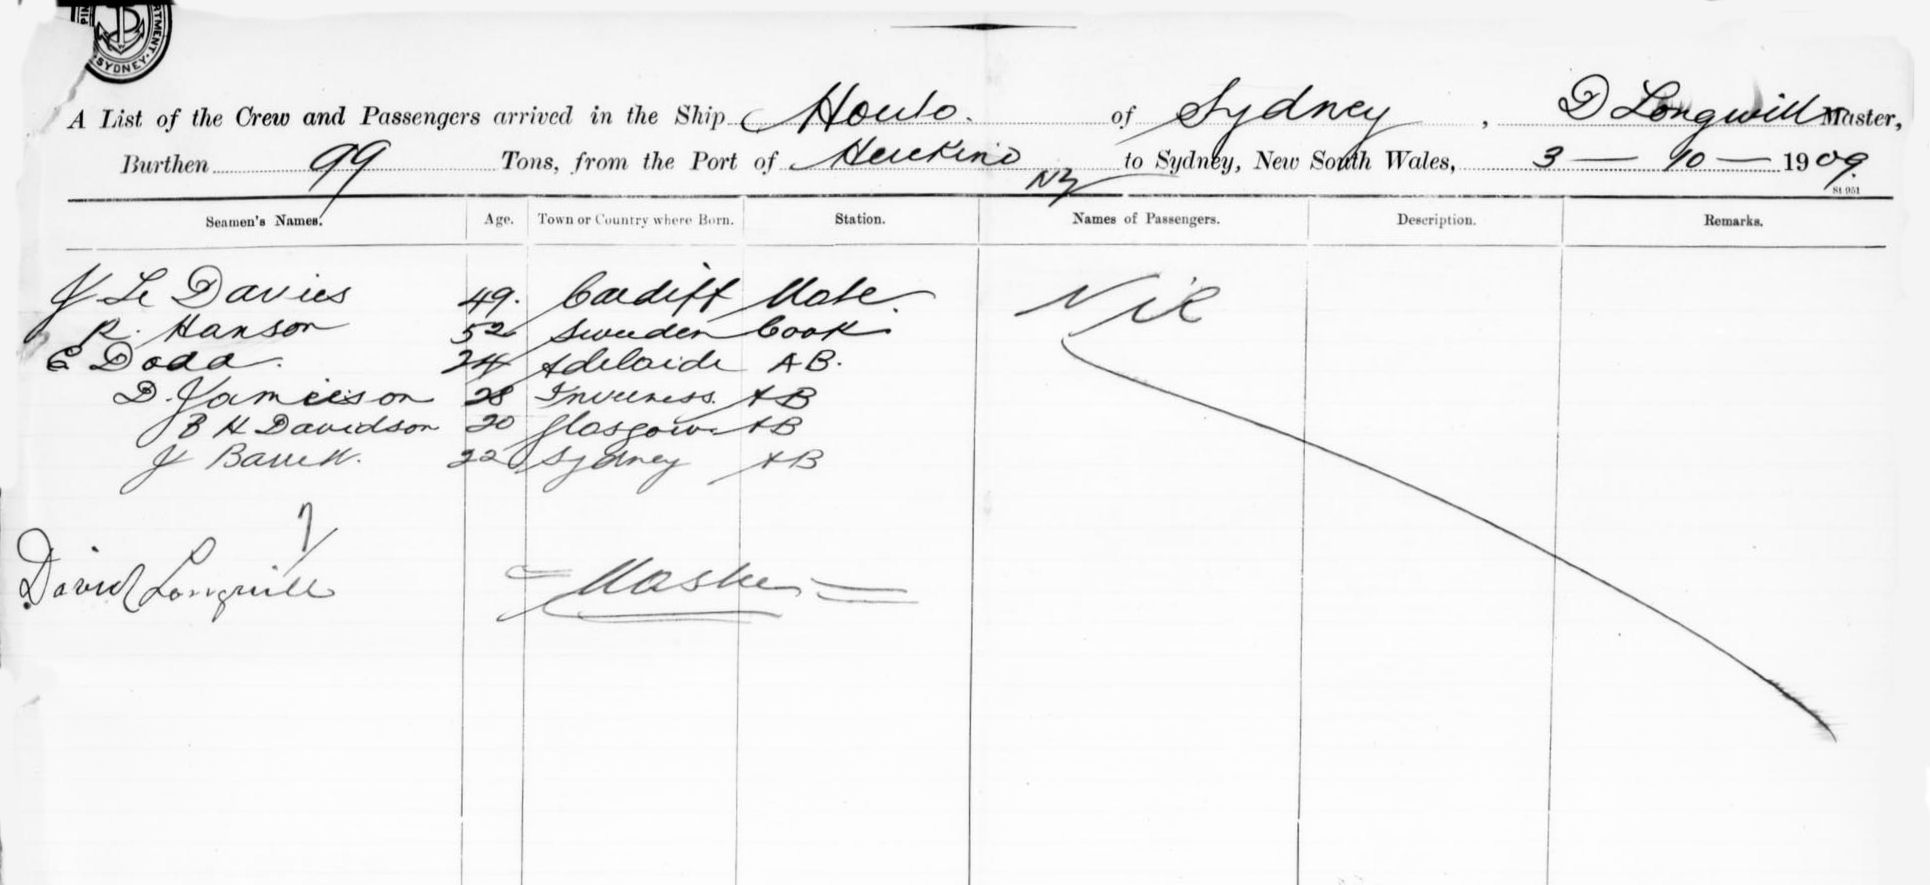 SYDNEY
A List of the Crew and Passengers arrived in the Ship Houto. of Sydney, D Longwill Master,
Burthen 99 Tons, from the Port of Herekino NZ to Sydney, New South Wales, 3 — 10 — 1909.
St 951
Seamen's Names. Age. Town or Country where Born. Station. Names of Passengers. Description. Remarks.
Davies 49. Cardiff Mate. Nil
R. Hanson 52 Sweden Cook
E Dodd. 24 Adelaide AB.
D. Jamieson 28 Inverness. AB
B H Davidson 20 Glasgow. AB
J 22 Sydney AB
7
David Longwill = Master =